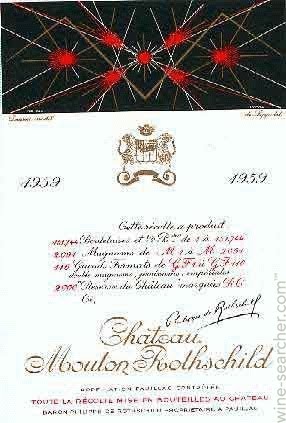 1959 1959
Cette récolte a produit
151.744 Bordelaises et 1/2 Bses de 1 à 151.744
2.091 Magnums de M 1 à M 2091
116 Grands Formats de G F 1 à G F 116
double magnums, jéroboams, impériales
2.000 "Réserve du Château" marquées R.C.
Ci,
Philippe de Rothschild
Château
Mouton Rothschild
APPELLATION PAUILLAC CONTRÔLÉE
TOUTE LA RÉCOLTE MISE EN BOUTEILLES AU CHÂTEAU
BARON PHILIPPE DE ROTHSCHILD PROPRIÉTAIRE A PAUILLAC
© wine-searcher.com